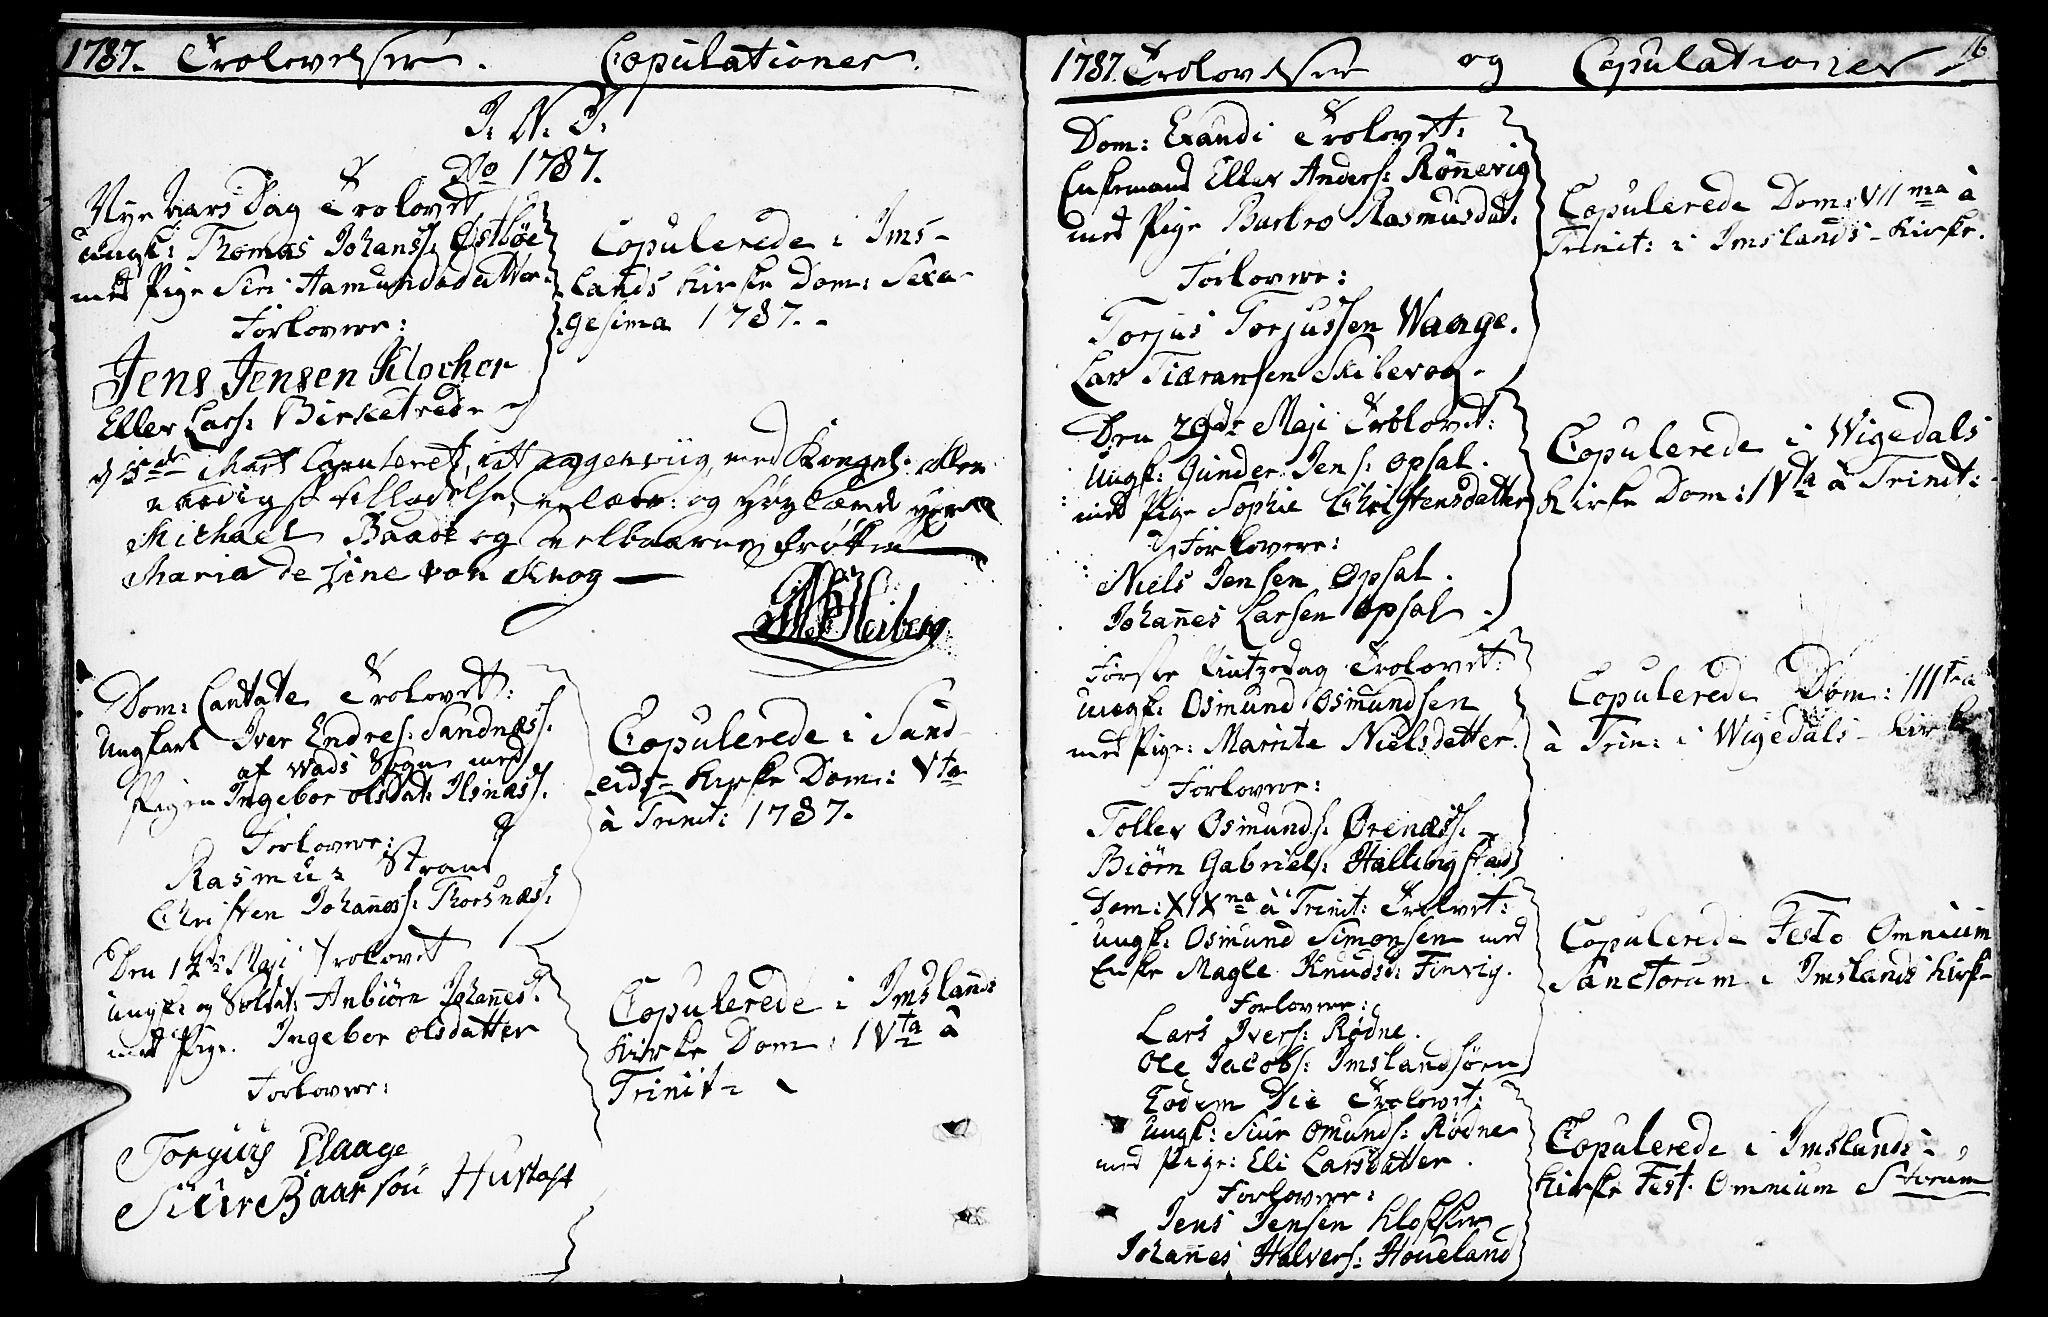 1787. Trolovelser. Copulationer.
J: N: J:
Ao 1787.
Nye Aars Dag Trolovet
ungk: Thomas Johanss: Østbøe
med Pige Siri Aamundsdatter.
Forlovere:
Jens Jensen Klocher
Eller Lars: Birketved
Copulerede i Ims-
lands Kirke Dom: Sexa-
gesima 1787.
Michael Baade og velbaarne Frøken
Maria de Fine von Krog
Heiberg
Dom: Cantate Trolovet:
Ungkarl Iver Endres: Sandnæss:
af Wads Sogn med
Pigen Ingebor olsdat: Ilsnæss:
Forlovere:
Rasmus Strand
Christen Johanness: Thorsnæss:
Copulerede i Sand-
eids-Kirke Dom: Vta
à Trinit: 1787.
Den 14de Maji Trolovet
ungk: og Soldat: Anbiörn Johannes:
med Pige. Ingebor olsdatter
Forlovere:
Torguis Waage
Siur Baarsøn Hustoft
Copulerede i Imslands
Kirke Dom: IVta à
Trinit:
1787. Trolovelser og Copulationer 16
Dom: Exaudi Trolovet:
Enkemand Eller Anders: Rönnevig
med Pige Barbro Rasmusdat:
Forlovere:
Torjus Torjussen Waage.
Lars Tiæransen Skibevog
Copulerede Dom: VIIma à
Trinit: i Imslands-Kirke.
Den 29de Maji Trolovet:
Ungk: Gunder Jens: opsal.
med Pige Sophie Christensdatter
Forlovere:
Niels Jensen Opsal.
Johannes Larsen opsal
Copulerede i Wigedals
Kirke Dom: IVta à Trinit:
Første Pintzedag Trolovet:
ungk: Osmund Osmundsen
med Pige: Marrite Nielsdatter.
Forlovere:
Toller Osmunds: Ørenæss:
Biörn Gabriels: Hallingstad
Copulerede Dom: IIItia
à Trin: i Wigedals-Kirke
Dom: XIXna à Trinit: Trolovet:
ungk: Osmund Simonsen med
Enke Magle Knudsd: Finvig.
Forlovere:
Lars Ivers: Rødne.
Ole Jacobs: Imslandsören
Copulerede Festo Omnium
Sanctorum i Imslands Kirke
Eodem Die Trolovet:
ungk: Siur Omunds: Rødne
med Pige: Eli Larsdatter.
Forlovere:
Jens Jensen Klokker
Johannes Halvers: Houeland
Copulerede i Imslands-
Kirke Fest. Omnium S:torum